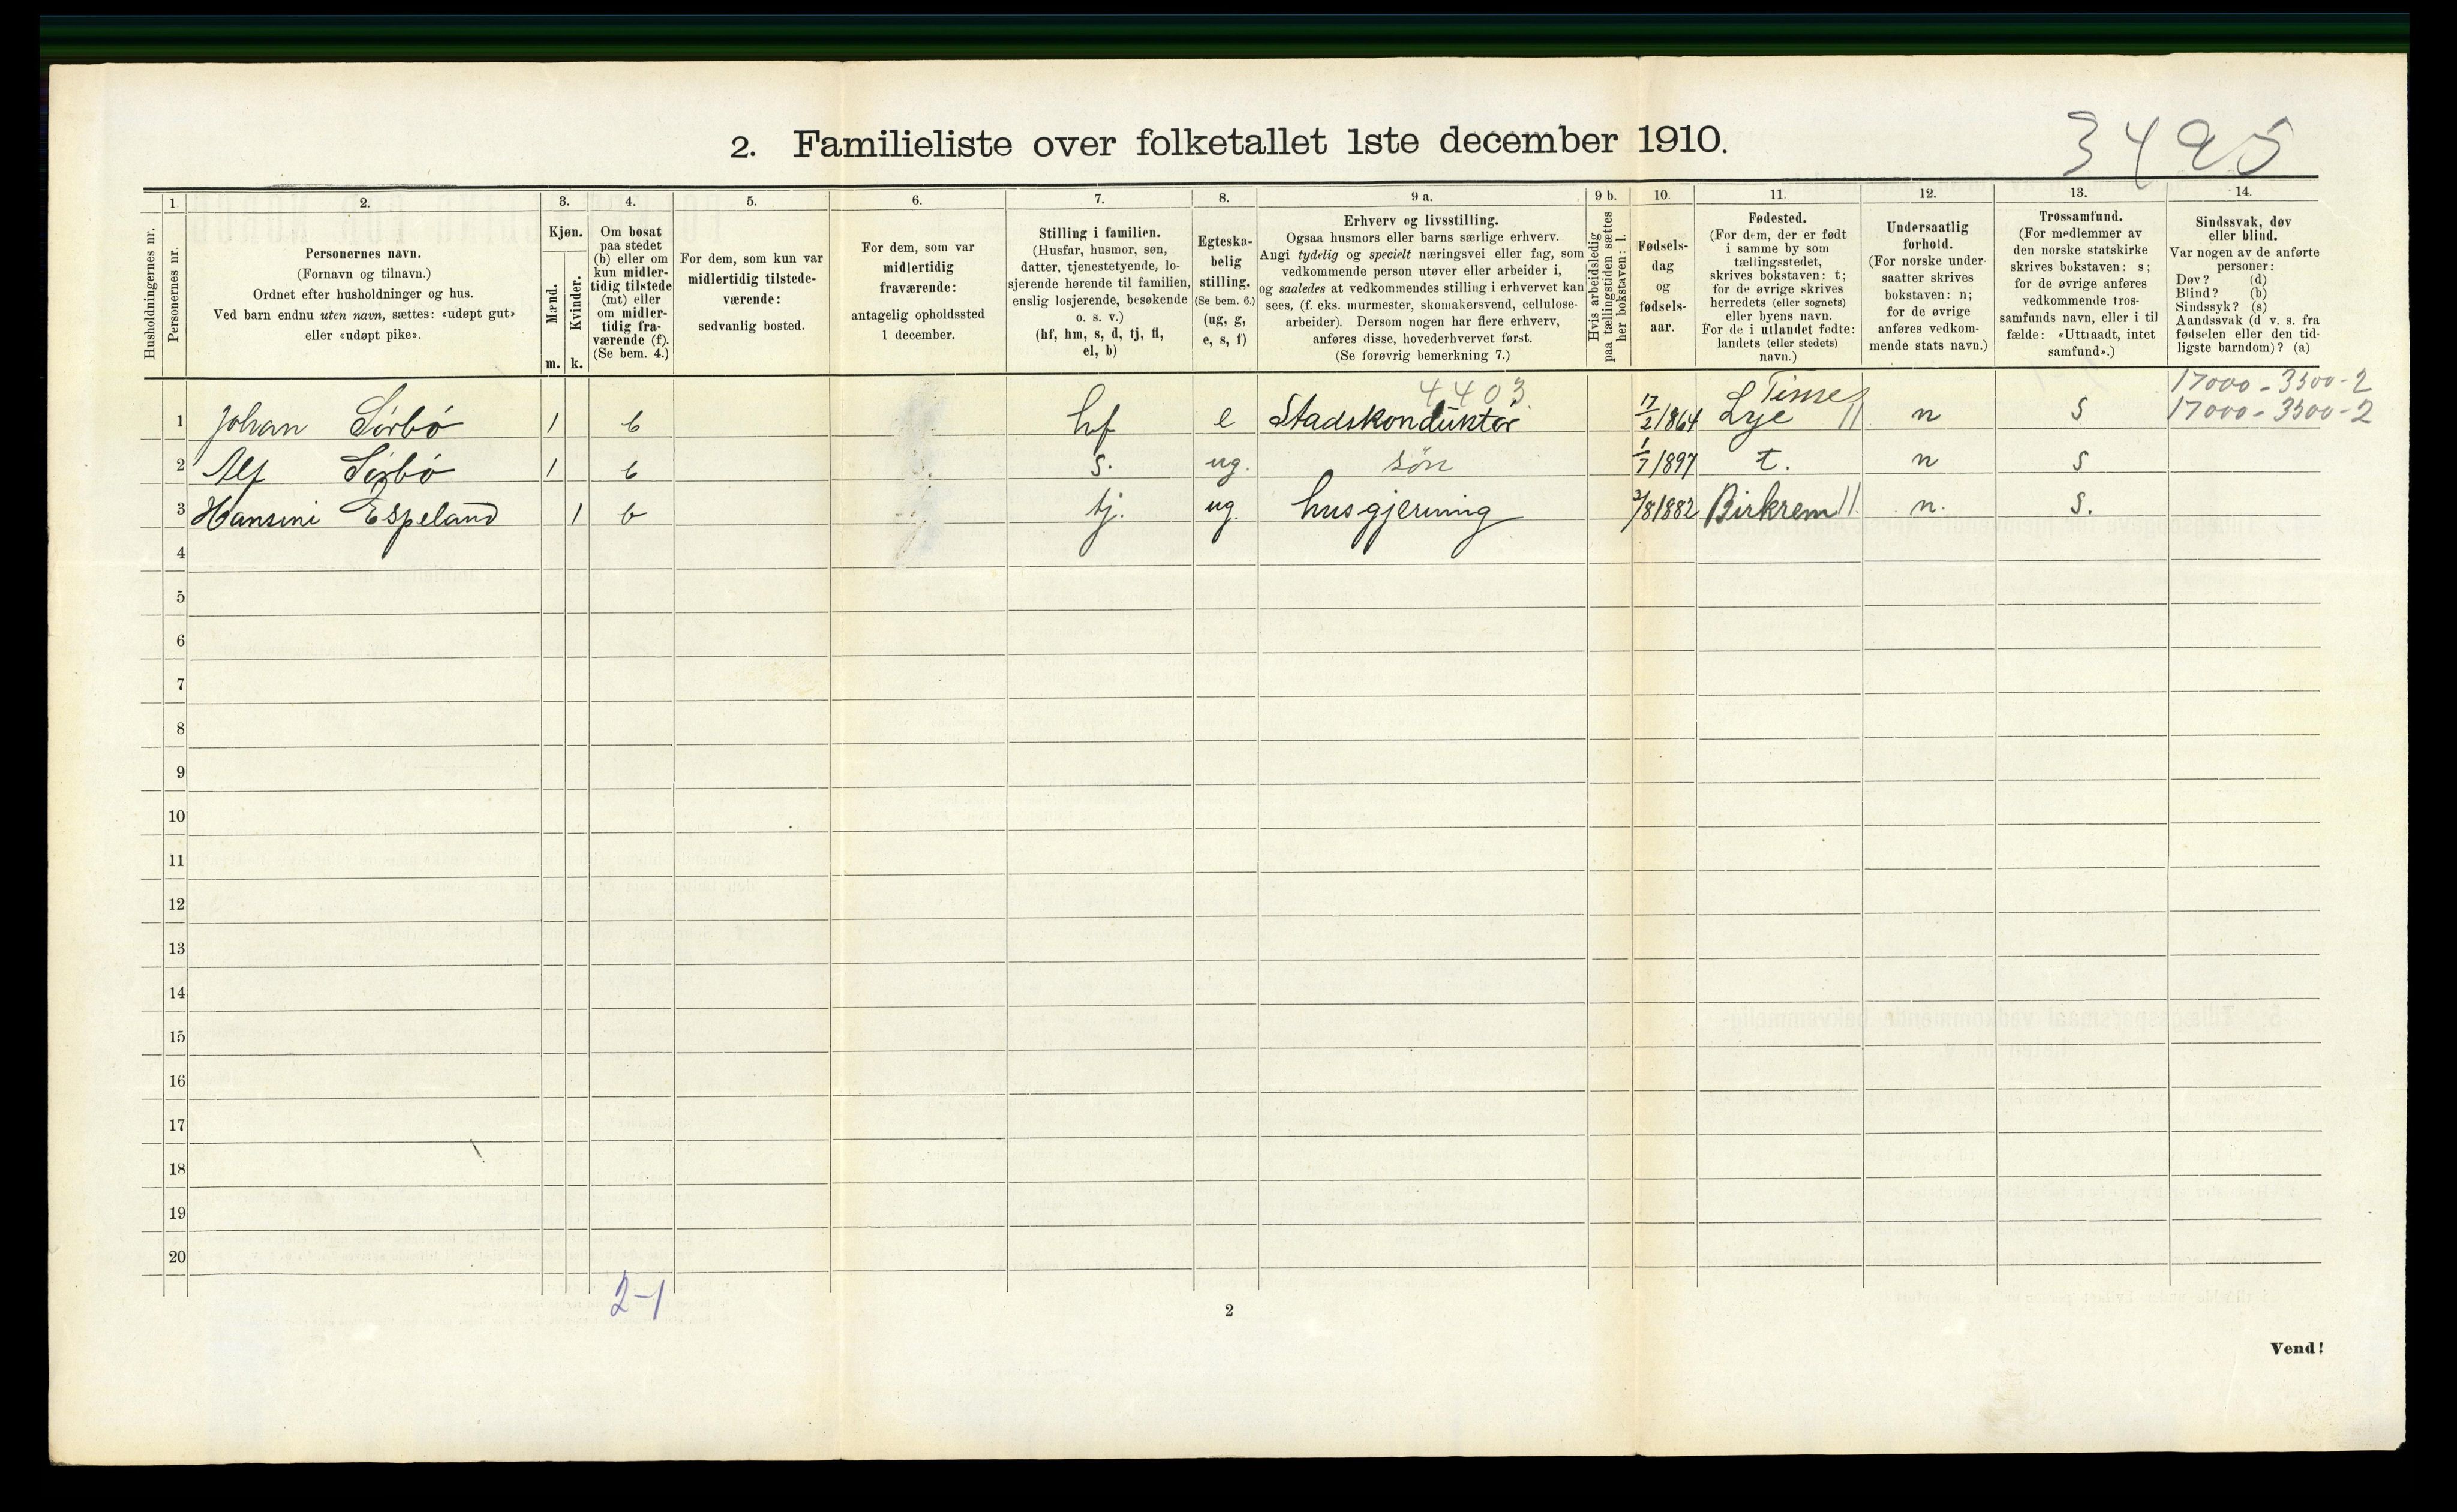 3495
2. Familieliste over folketallet 1ste december 1910.
Husholdningernes nr.
1. Personernes nr.
2. Personernes navn.
(Fornavn og tilnavn.)
Ordnet efter husholdninger og hus.
Ved barn endnu uten navn, sættes: «udøpt gut»
eller «udøpt pike».
3. Kjøn.
Mænd. m.
Kvinder. k.
4. Om bosat
paa stedet
(b) eller om
kun midler-
tidig tilstede
(mt) eller
om midler-
tidig fra-
værende (f).
(Se bem. 4.)
5. For dem, som kun var
midlertidig tilstede-
værende:
sedvanlig bosted.
6. For dem, som var
midlertidig
fraværende:
antagelig opholdssted
1 december.
7. Stilling i familien.
(Husfar, husmor, søn,
datter, tjenestetyende, lo-
sjerende hørende til familien,
enslig losjerende, besøkende
o. s. v.)
(hf, hm, s, d, tj, fl,
el, b)
8. Egteska-
belig
stilling.
(Se bem. 6.)
(ug, g,
e, s, f)
9 a. Erhverv og livsstilling.
Ogsaa husmors eller barns særlige erhverv.
Angi tydelig og specielt næringsvei eller fag, som
vedkommende person utøver eller arbeider i,
og saaledes at vedkommendes stilling i erhvervet kan
sees, (f. eks. murmester, skomakersvend, cellulose-
arbeider). Dersom nogen har flere erhverv,
anføres disse, hovederhvervet først.
(Se forøvrig bemerkning 7.)
9 b. Hvis arbeidsledig
paa tællingstiden sættes
her bokstaven: l.
10. Fødsels-
dag
og
fødsels-
aar.
11. Fødested.
(For dem, der er født
i samme by som
tællingsstedet,
skrives bokstaven: t;
for de øvrige skrives
herredets (eller sognets)
eller byens navn.
For de i utlandet fødte:
landets (eller stedets)
navn.)
12. Undersaatlig
forhold.
(For norske under-
saatter skrives
bokstaven: n;
for de øvrige
anføres vedkom-
mende stats navn.)
13. Trossamfund.
(For medlemmer av
den norske statskirke
skrives bokstaven: s;
for de øvrige anføres
vedkommende tros-
samfunds navn, eller i til-
fælde: «Uttraadt, intet
samfund».)
14. Sindssvak, døv
eller blind.
Var nogen av de anførte
personer:
Døv? (d)
Blind? (b)
Sindssyk? (s)
Aandssvak (d v. s. fra
fødselen eller den tid-
ligste barndom)? (a)
4403 Time 17000-3500-2
1 Johan Sörbö 1 b hf e Stadskonduktør 17/2 1864 Lye || n s 17000-3500-2
2 Alf Sörbö 1 b s. ug. søn 1/7 1897 t. n s
3 Hansini Espeland 1 b tj. ug. husgjerning 2/8 1882 Birkrem || n. s.
4
5
6
7
8
9
10
11
12
13
14
15
16
17
18
19
20
2-1
2
Vend!